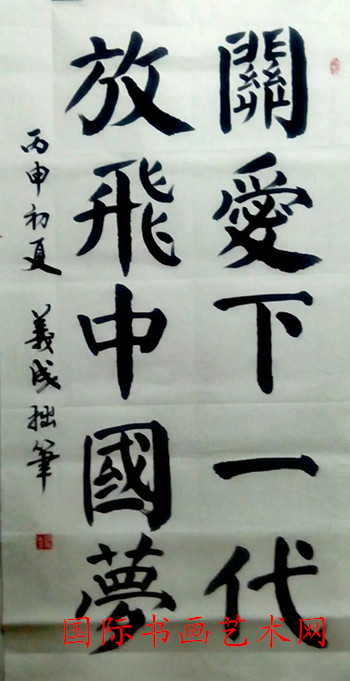 關愛下一代
放飛中國夢
丙申初夏 義成拙筆
国际书画艺术网